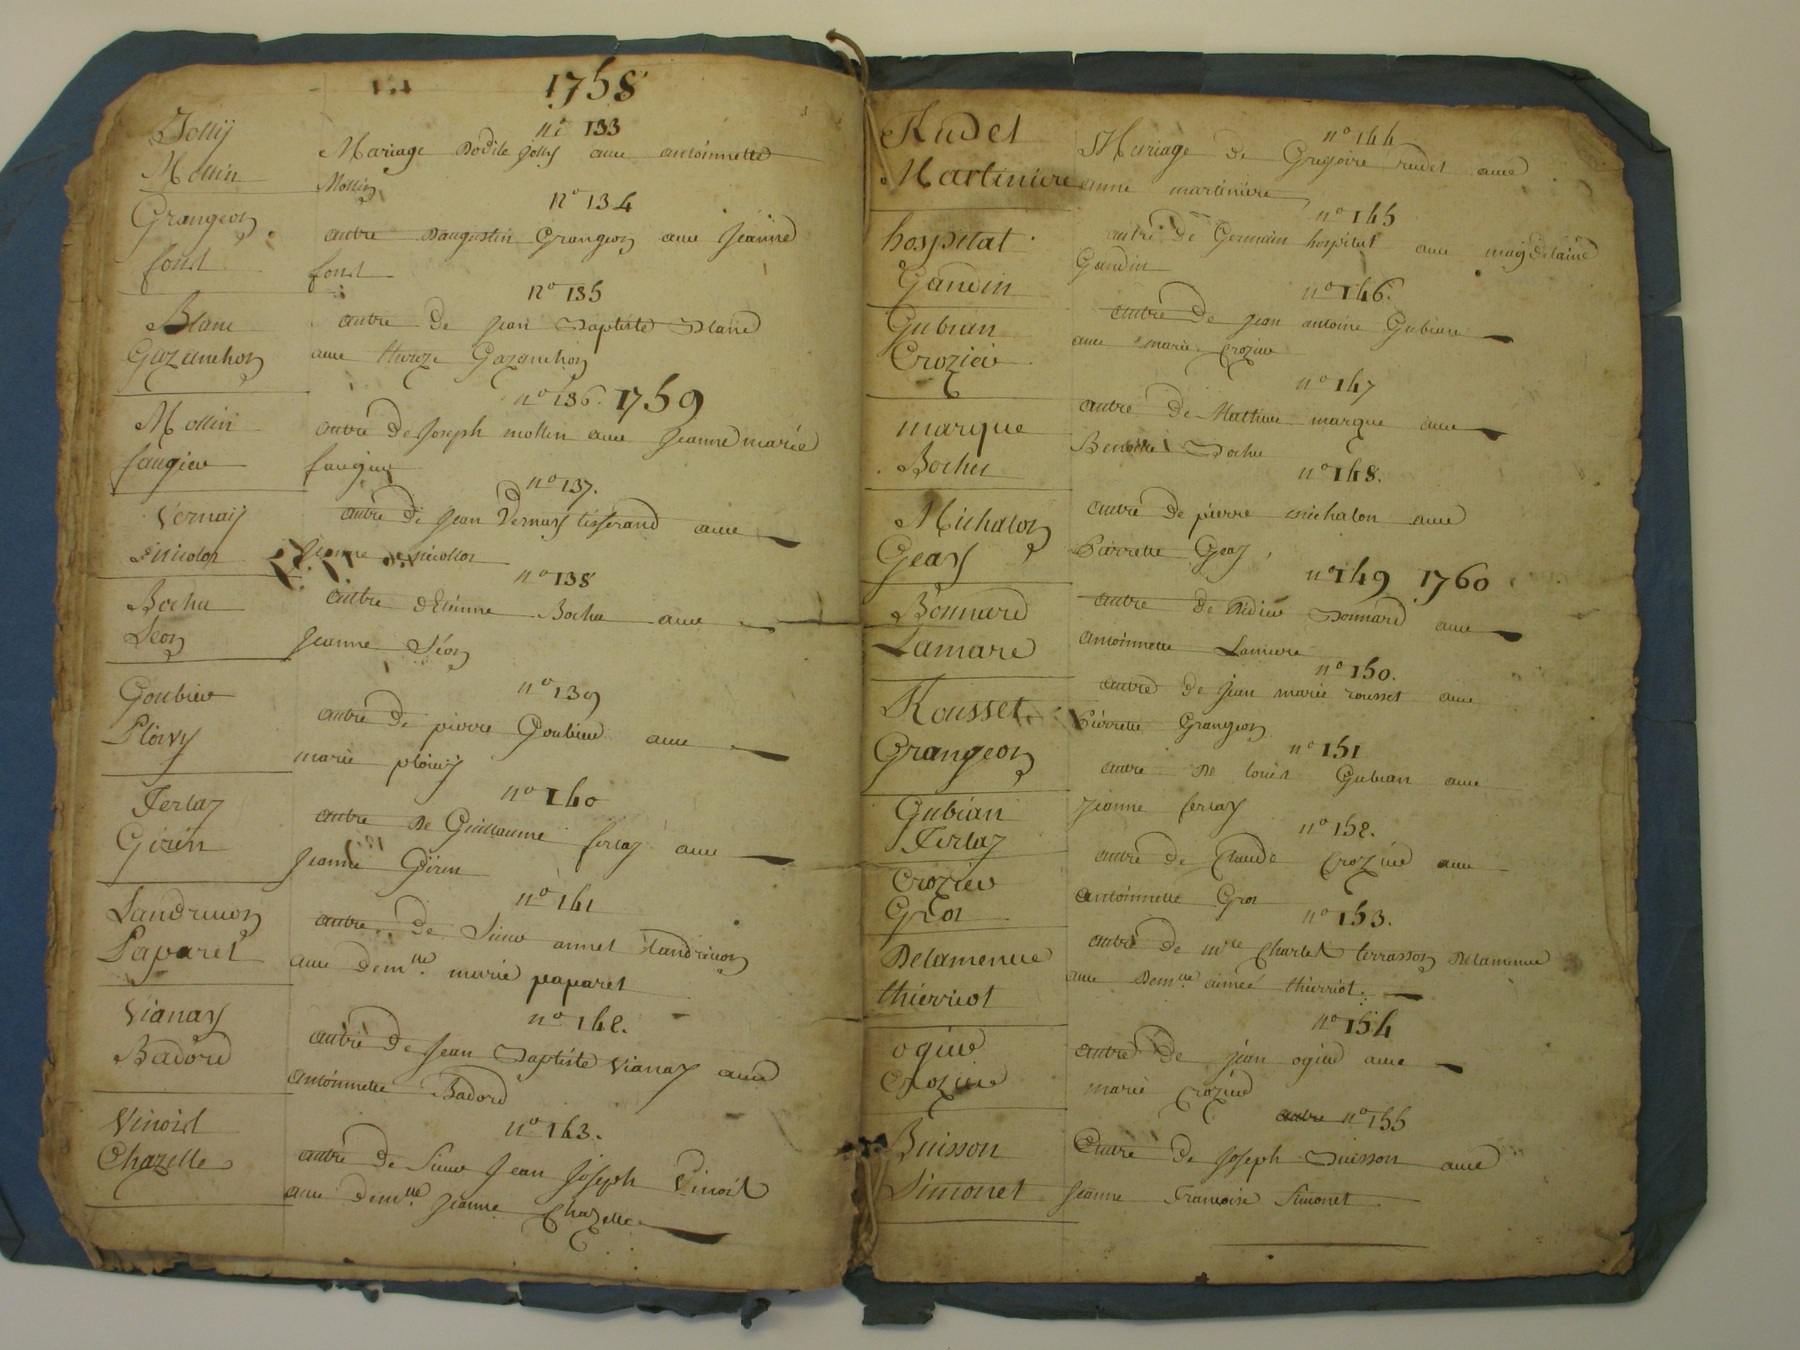 1758
Jolly
Mollin
n° 133
Mariage Dodile Jolly avec antoinnette
Mollin
Grangeon
font
n° 134
autre Daugustin Grangeon avec Jeanne
font
Blanc
Gazanchon
n° 135
autre De Jean Baptiste Blanc
avec Gazanchon
n° 136. 1759
Mollin
faugier
autre De Joseph mollin avec Jeanne marie
faugier
Vernay
n° 137.
autre De Jean Vernay tisserand avec
Jeanne
Bochu
Léon
n° 138
autre dEtienne Bochu avec
Jeanne Léon
Goubier
Ploivy
n° 139
autre De pierre Goubier avec
marie ploivy
Ferlay
Girin
n° 140
autre De Guillaume ferlay avec
Jeanne Girin
Landrivon
Paparel
n° 141
autre De Sieur annet Landrivon
avec demlle marie paparel
Vianay
Badord
n° 142.
autre De Jean Baptiste Vianay avec
antoinnette Badord
Vinoist
Chazelle
n° 143.
autre De Sieur Jean Joseph Vinoist
avec demlle Jeanne Chazelle
Rudet
Martiniere
n° 144
Mariage De Gregoire rudet avec
anne martiniere
hospital
Gandin
n° 145
autre De Germain hospital avec magdelaine
Gandin
Gubian
Crozier
n° 146.
autre De jean antoine Gubian
avec marie Crozier
marque
Bochu
n° 147
autre De Mathieu marque avec
Benoitte Bochu
Michalon
Geay
n° 148.
autre De pierre michalon avec
Pierrette Geay
n° 149 1760
Bonnard
Lamare
autre De Didier Bonnard avec
antoinnette
Rousset
Grangeon
n° 150.
autre De Jean marie rousset avec
Pierrette Grangeon
Gubian
Ferlay
n° 151
autre De louis Gubian avec
Jeanne ferlay
Crozier
Gros
n° 152.
autre De Claude Crozier avec
antoinnette Gros
Delamenue
thierriot
n° 153.
autre De Charles terrasson Delamenue
avec Demlle aimée thierriot.
ogier
Crozier
n° 154
autre De jean ogier avec
marie Crozier
Buisson
Simonet
autre n° 155
autre De Joseph Buisson avec
Jeanne Francoise Simonet